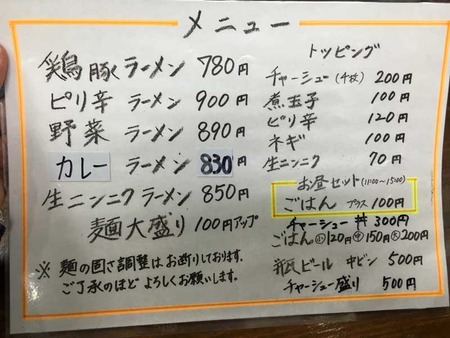 メニュー
鶏豚ラーメン 780円
ピリ辛 ラーメン 900円
野菜 ラーメン 890円
カレー ラーメン 830円
生ニンニク ラーメン 850円
麺大盛り 100円アップ
※ 麺の固さ調整は、お断りしております。
ご了承のほど よろしくお願いします。
トッピング
チャーシュー(4枚) 200円
煮玉子 100円
ピリ辛 120円
ネギ 100円
生ニンニク 70円
お昼セット(11:00〜15:00)
ごはん プラス 100円
チャーシュー丼 300円
ごはん小120円中150円大200円
瓶ビール 中ビン 500円
チャーシュー盛り 500円